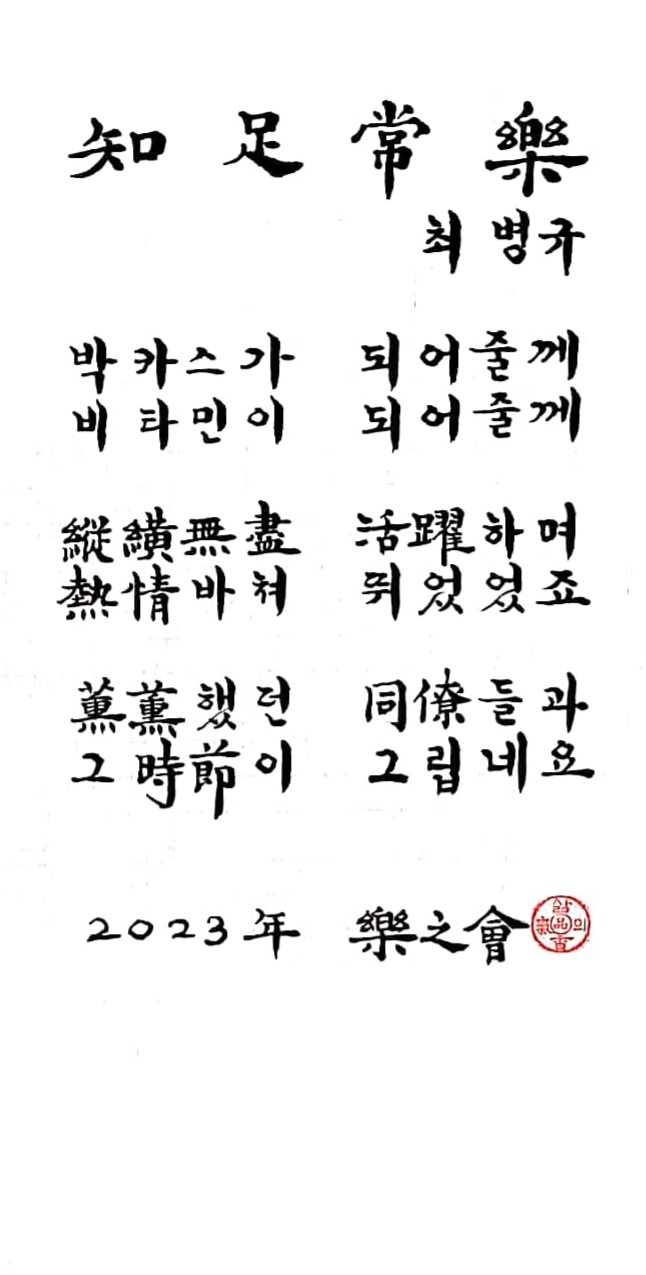 知足常樂
최병규
박카스가 되어줄께
비타민이 되어줄께
縱橫無盡 活躍하며
熱情바쳐 뛰었었죠
薰薰했던 同僚들과
그時節이 그립네요
2023年 樂之會